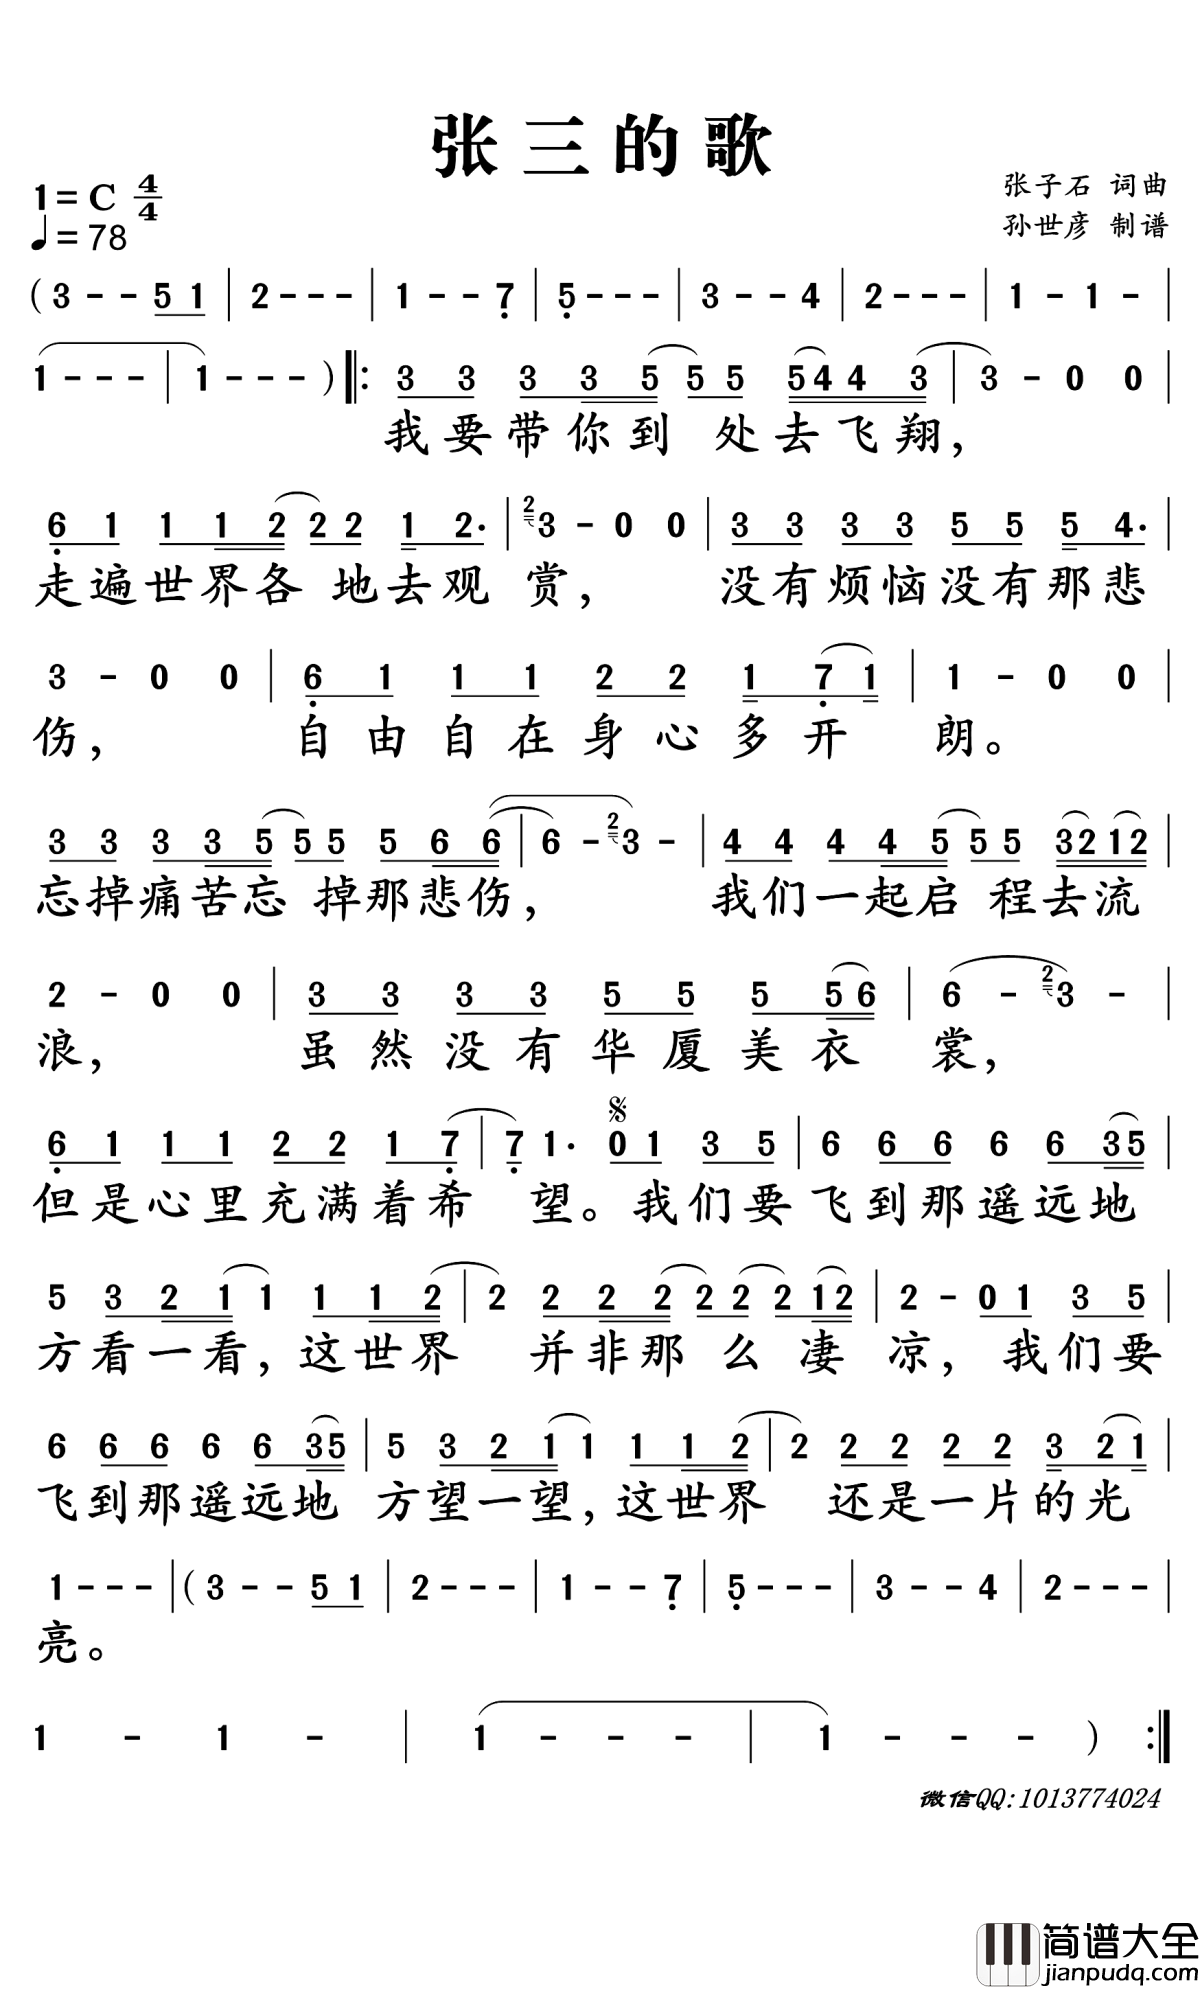 张三的歌
1=C 4/4
张子石 词曲
♩=78
孙世彦 制谱
(3 - - 5 1 | 2 - - - | 1 - - 7 | 5 - - - | 3 - - 4 | 2 - - - | 1 - 1 - |
1 - - - | 1 - - - ) |: 3 3 3 3 5 5 5 5 4 4 3 | 3 - 0 0 |
我要带你到 处去飞翔，
6 1 1 1 2 2 2 1 2. | 2 3 - 0 0 | 3 3 3 3 5 5 5 4. |
走遍世界各 地去观 赏， 没有烦恼没有那悲
3 - 0 0 | 6 1 1 1 2 2 1 7 1 | 1 - 0 0 |
伤， 自由自在身心多开 朗。
3 3 3 3 5 5 5 5 6 6 | 6 - 2 3 - | 4 4 4 4 5 5 5 3 2 1 2 |
忘掉痛苦忘 掉那悲伤， 我们一起启 程去流
2 - 0 0 | 3 3 3 3 5 5 5 5 6 | 6 - 2 3 - |
浪， 虽然没有华厦美衣 裳，
6 1 1 1 2 2 1 7 | 7 1. 𝄋 0 1 3 5 | 6 6 6 6 6 3 5 |
但是心里充满着希 望。我们要飞到那遥远地
5 3 2 1 1 1 1 2 | 2 2 2 2 2 2 2 1 2 | 2 - 0 1 3 5 |
方看一看，这世界 并非那么凄 凉，我们要
6 6 6 6 6 3 5 | 5 3 2 1 1 1 1 2 | 2 2 2 2 2 3 2 1 |
飞到那遥远地 方望一望，这世界 还是一片的光
1 - - - | (3 - - 5 1 | 2 - - - | 1 - - 7 | 5 - - - | 3 - - 4 | 2 - - - |
亮。
1 - 1 - | 1 - - - | 1 - - - ) :|
微信QQ:1013774024
简谱大全
jianpudq.com